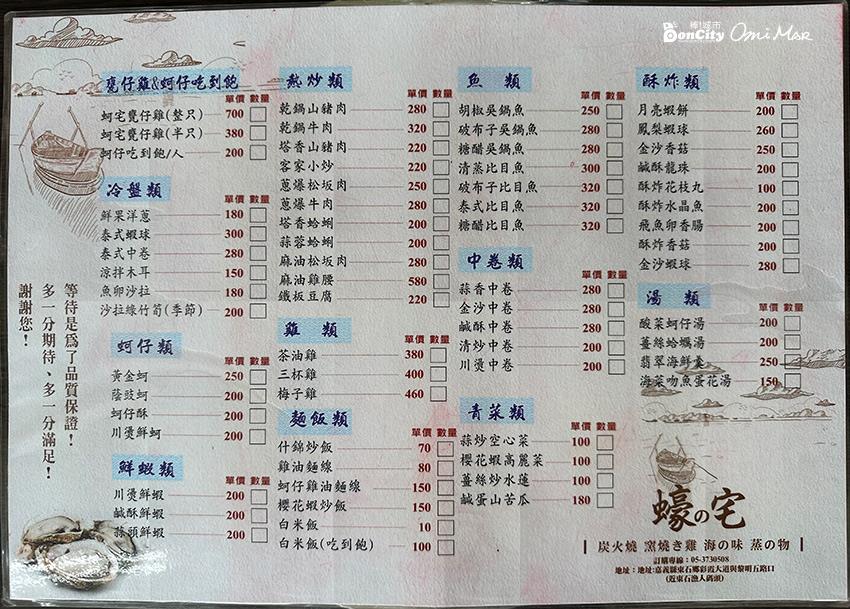 棒!城市
BonCity Omi Mar
甕仔雞&蚵仔吃到飽
單價 數量
蚵宅甕仔雞(整只) 700
蚵宅甕仔雞(半只) 380
蚵仔吃到飽/人 200
冷盤類
單價 數量
鮮果洋蔥 180
泰式蝦球 300
泰式中卷 280
涼拌木耳 150
魚卵沙拉 180
沙拉綠竹筍(季節) 200
蚵仔類
單價 數量
黃金蚵 250
蔭豉蚵 200
蚵仔酥 200
川燙鮮蚵 200
鮮蝦類
單價 數量
川燙鮮蝦 200
鹹酥鮮蝦 200
蒜頭鮮蝦 200
等待是為了品質保證!
多一分期待、多一分滿足!
謝謝您!
熱炒類
單價 數量
乾鍋山豬肉 280
乾鍋牛肉 320
塔香山豬肉 220
客家小炒 220
蔥爆松坂肉 250
蔥爆牛肉 200
塔香蛤蜊 200
蒜蓉蛤蜊 200
麻油松坂肉 280
麻油雞腰 580
鐵板豆腐 220
雞 類
單價 數量
茶油雞 380
三杯雞 400
梅子雞 460
麵飯類
單價 數量
什錦炒飯 70
雞油麵線 80
蚵仔雞油麵線 150
櫻花蝦炒飯 150
白米飯 10
白米飯(吃到飽) 100
魚 類
單價 數量
胡椒吳鍋魚 250
破布子吳鍋魚 280
糖醋吳鍋魚 280
清蒸比目魚 300
破布子比目魚 320
泰式比目魚 320
糖醋比目魚 320
中卷類
單價 數量
蒜香中卷 280
金沙中卷 280
鹹酥中卷 280
清炒中卷 200
川燙中卷 200
青菜類
單價 數量
蒜炒空心菜 100
櫻花蝦高麗菜 100
薑絲炒水蓮 100
鹹蛋山苦瓜 180
酥炸類
單價 數量
月亮蝦餅 200
鳳梨蝦球 260
金沙香菇 250
鹹酥龍珠 200
酥炸花枝丸 100
酥炸水晶魚 200
飛魚卵香腸 200
酥炸香菇 200
金沙蝦球 280
湯 類
單價 數量
酸菜蚵仔湯 200
薑絲蛤蠣湯 200
翡翠海鮮羹 250
海菜吻魚蛋花湯 150
蠔の宅
炭火燒 窯燒き雞 海の味 蒸の物
訂購專線:05-3730508
地址:地址:嘉義縣東石鄉彩霞大道與黎明五路口
(近東石漁人碼頭)